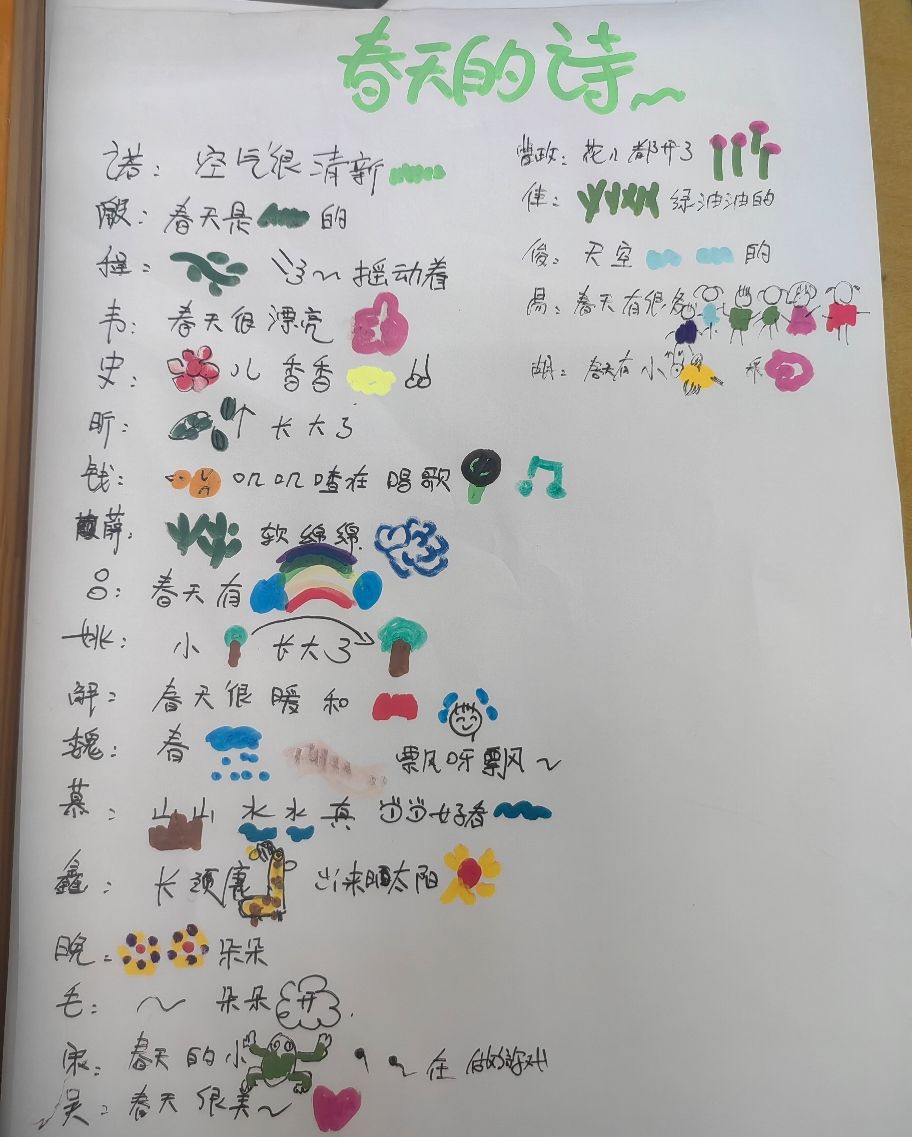 春天的诗~
诺：空气很清新
殷：春天是 的
程： ~ 摇动着
韦：春天很漂亮
史： 儿 香香
昕： 个 长大了
钱： 叽叽喳在 唱歌
薛： 软绵绵
吕：春天有
姚：小 长大了
解：春天很暖和
魏：春 飘风呀飘风~
慕：山山 水水 真 好看
鑫：长颈鹿 出来晒太阳
晚： 朵朵
毛：~ 朵朵 开
宋：春天的小 在 做游戏
吴：春天很美~
曾政：花儿都开了
佳： 绿油油的
俊：天空 的
易：春天有很多
胡：春天有 小 和